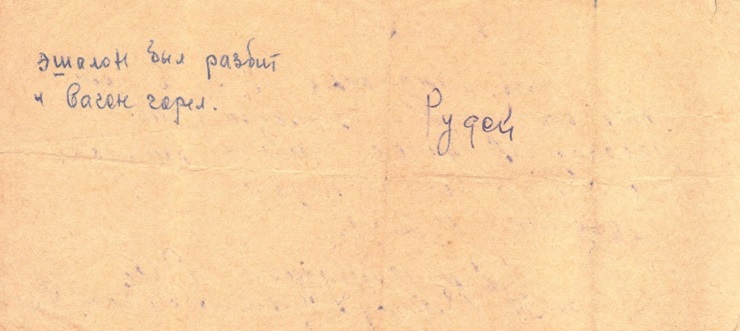 эшалон был разбит
и вагон горел.
Рудой